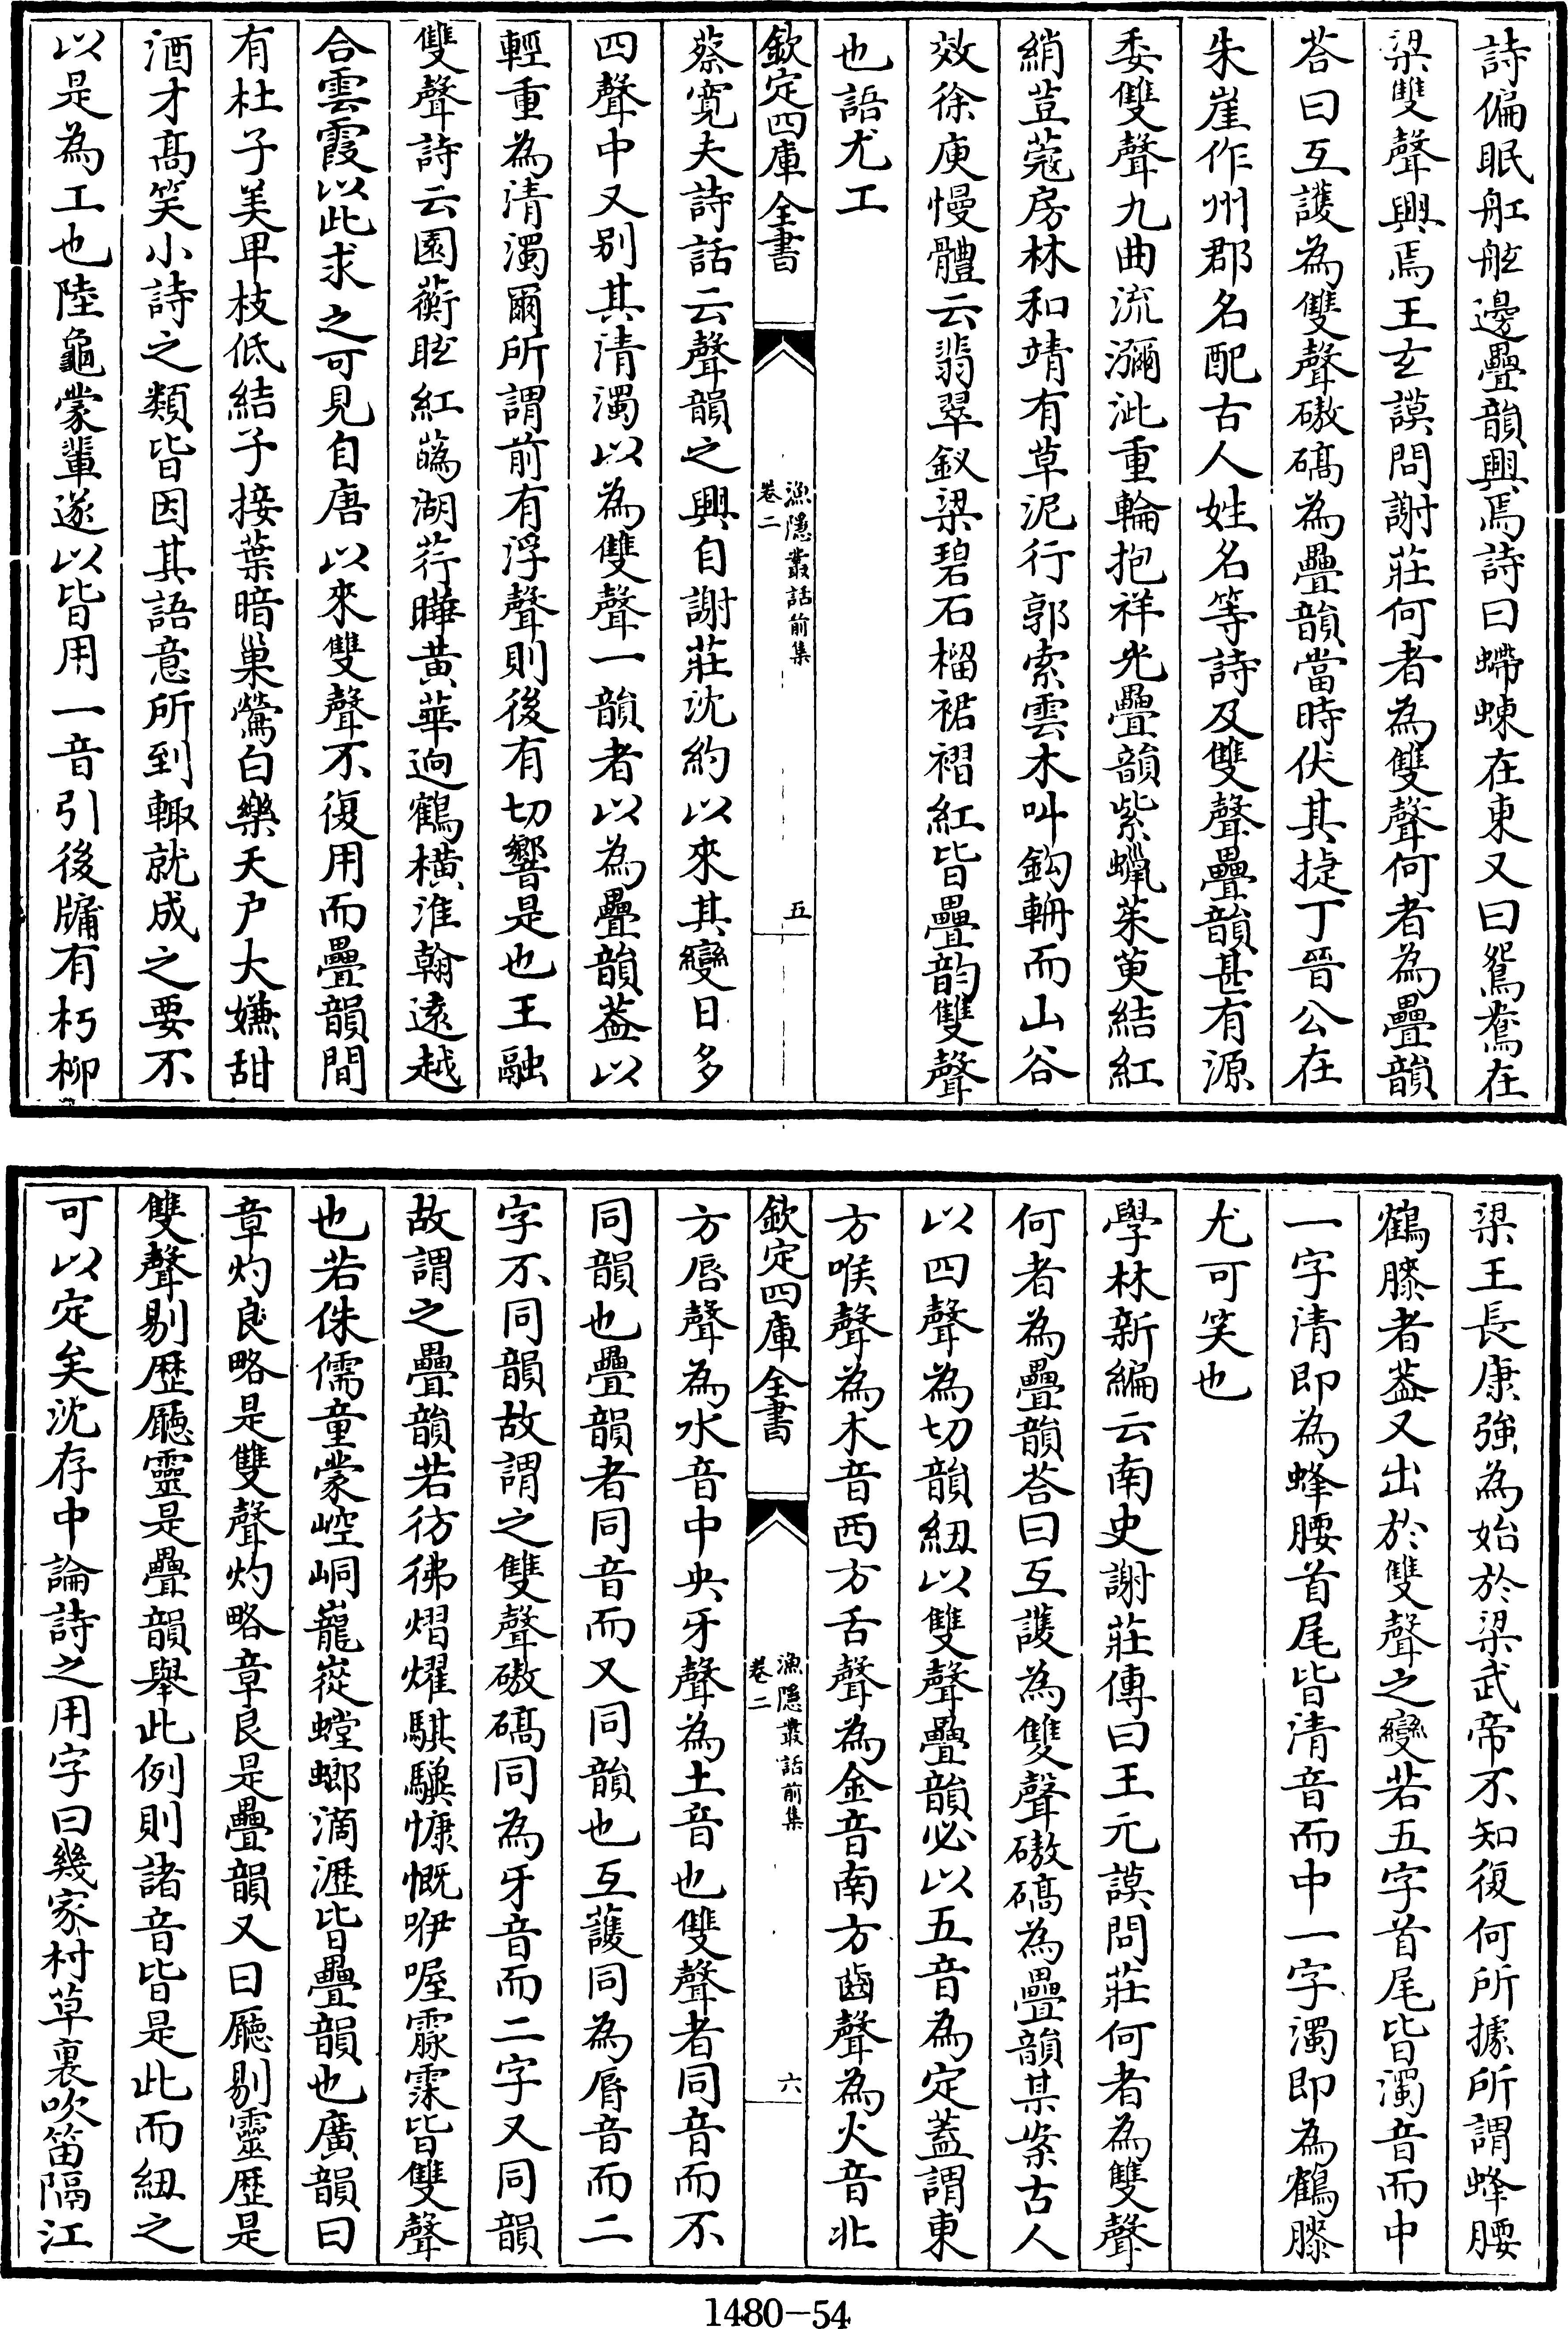 詩偏眠船舷邊疊韻興焉詩曰螮蝀在東又曰鴛鴦在
梁雙聲興焉王玄謨問謝莊何者為雙聲何者為疊韻
荅曰互護為雙聲磝碻為疊韻當時伏其捷丁晉公在
朱崖作州郡名配古人姓名等詩及雙聲疊韻甚有源
委雙聲九曲流瀰沘重輪抱祥光疊韻紫蠟茱萸結紅
綃荳蔻房林和靖有草泥行郭索雲木叫鈎輈而山谷
效徐庾慢體云翡翠釵梁碧石榴裙褶紅皆疊韵雙聲
也語尤工
欽定四庫全書
漁隱叢話前集
卷二
五
蔡寛夫詩話云聲韻之興自謝莊沈約以來其變日多
四聲中又别其清濁以為雙聲一韻者以為疊韻葢以
輕重為清濁爾所謂前有浮聲則後有切響是也王融
雙聲詩云園蘅眩紅蘤湖荇曄黄華逈鶴横淮翰遠越
合雲霞以此求之可見自唐以來雙聲不復用而疊韻間
有杜子美卑枝低結子接葉暗巢鶯白樂天户大嫌甜
酒才髙笑小詩之類皆因其語意所到輙就成之要不
以是為工也陸龜蒙輩遂以皆用一音引後牖有朽柳
梁王長康強為始於梁武帝不知復何所據所謂蜂腰
鶴膝者葢又出於雙聲之變若五字首尾皆濁音而中
一字清即為蜂腰首尾皆清音而中一字濁即為鶴膝
尤可笑也
學林新編云南史謝莊傳曰王元謨問莊何者為雙聲
何者為疊韻荅曰互護為雙聲磝碻為疊韻某案古人
以四聲為切韻紐以雙聲疊韻必以五音為定蓋謂東
方喉聲為木音西方舌聲為金音南方齒聲為火音北
欽定四庫全書
漁隱叢話前集
卷二
六
方唇聲為水音中央牙聲為土音也雙聲者同音而不
同韻也疊韻者同音而又同韻也互䕶同為脣音而二
字不同韻故謂之雙聲磝碻同為牙音而二字又同韻
故謂之疊韻若彷彿熠燿騏驥慷慨咿喔霡霂皆雙聲
也若侏儒童蒙崆峒巃嵸螳螂滴瀝皆疊韻也廣韻曰
章灼良略是雙聲灼略章良是疊韻又曰廳剔靈歴是
雙聲剔歴廳靈是疊韻舉此例則諸音皆是此而紐之
可以定矣沈存中論詩之用字曰幾家村草裏吹笛隔江
1480-54